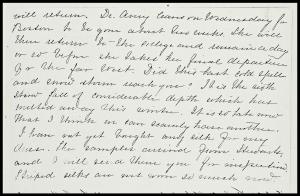 will return. Dr. Avery leaves on Wednesday for
Boston to be gone about two weeks. She will
then return to the College and remain a day
or so before she takes her final departure
for the far West. Did this last cold spell
and snow storm reach you? It is the sixth
snow fall of considerable depth which has
melted away this winter. It is so late now
that I think we can scarcely have another.
I have not yet bought any silk for my
dress. The samples arrived from Stewarts
and I will send them you for inspection.
Striped silks are not worn so much now